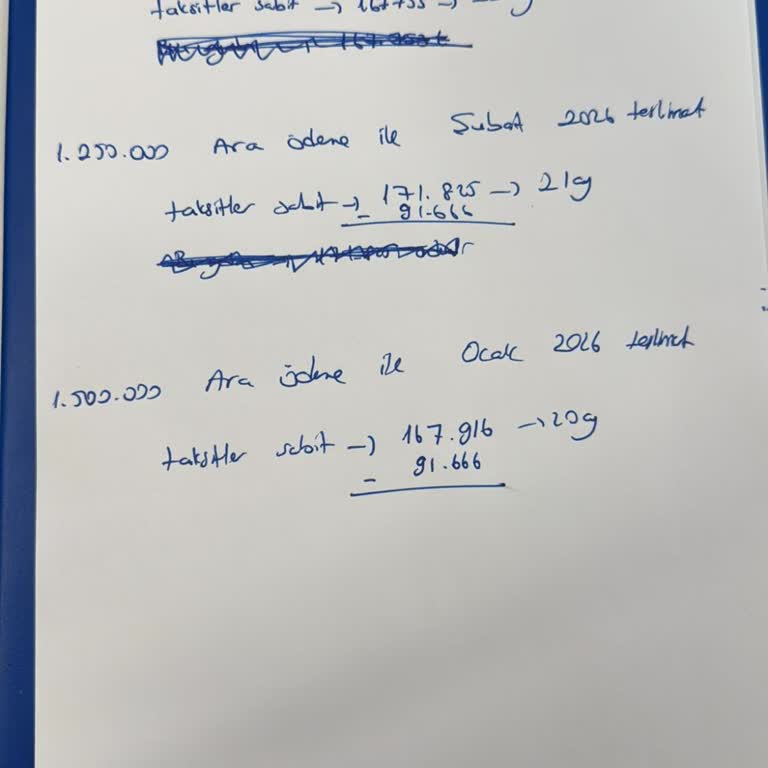 taksitler sabit →
1.250.000 Ara ödeme ile Şubat 2026 teslimat
taksitler sabit → 171.825 → 21g
- 91.666
1.500.000 Ara ödeme ile Ocak 2026 teslimat
taksitler sabit → 167.916 → 20g
- 91.666